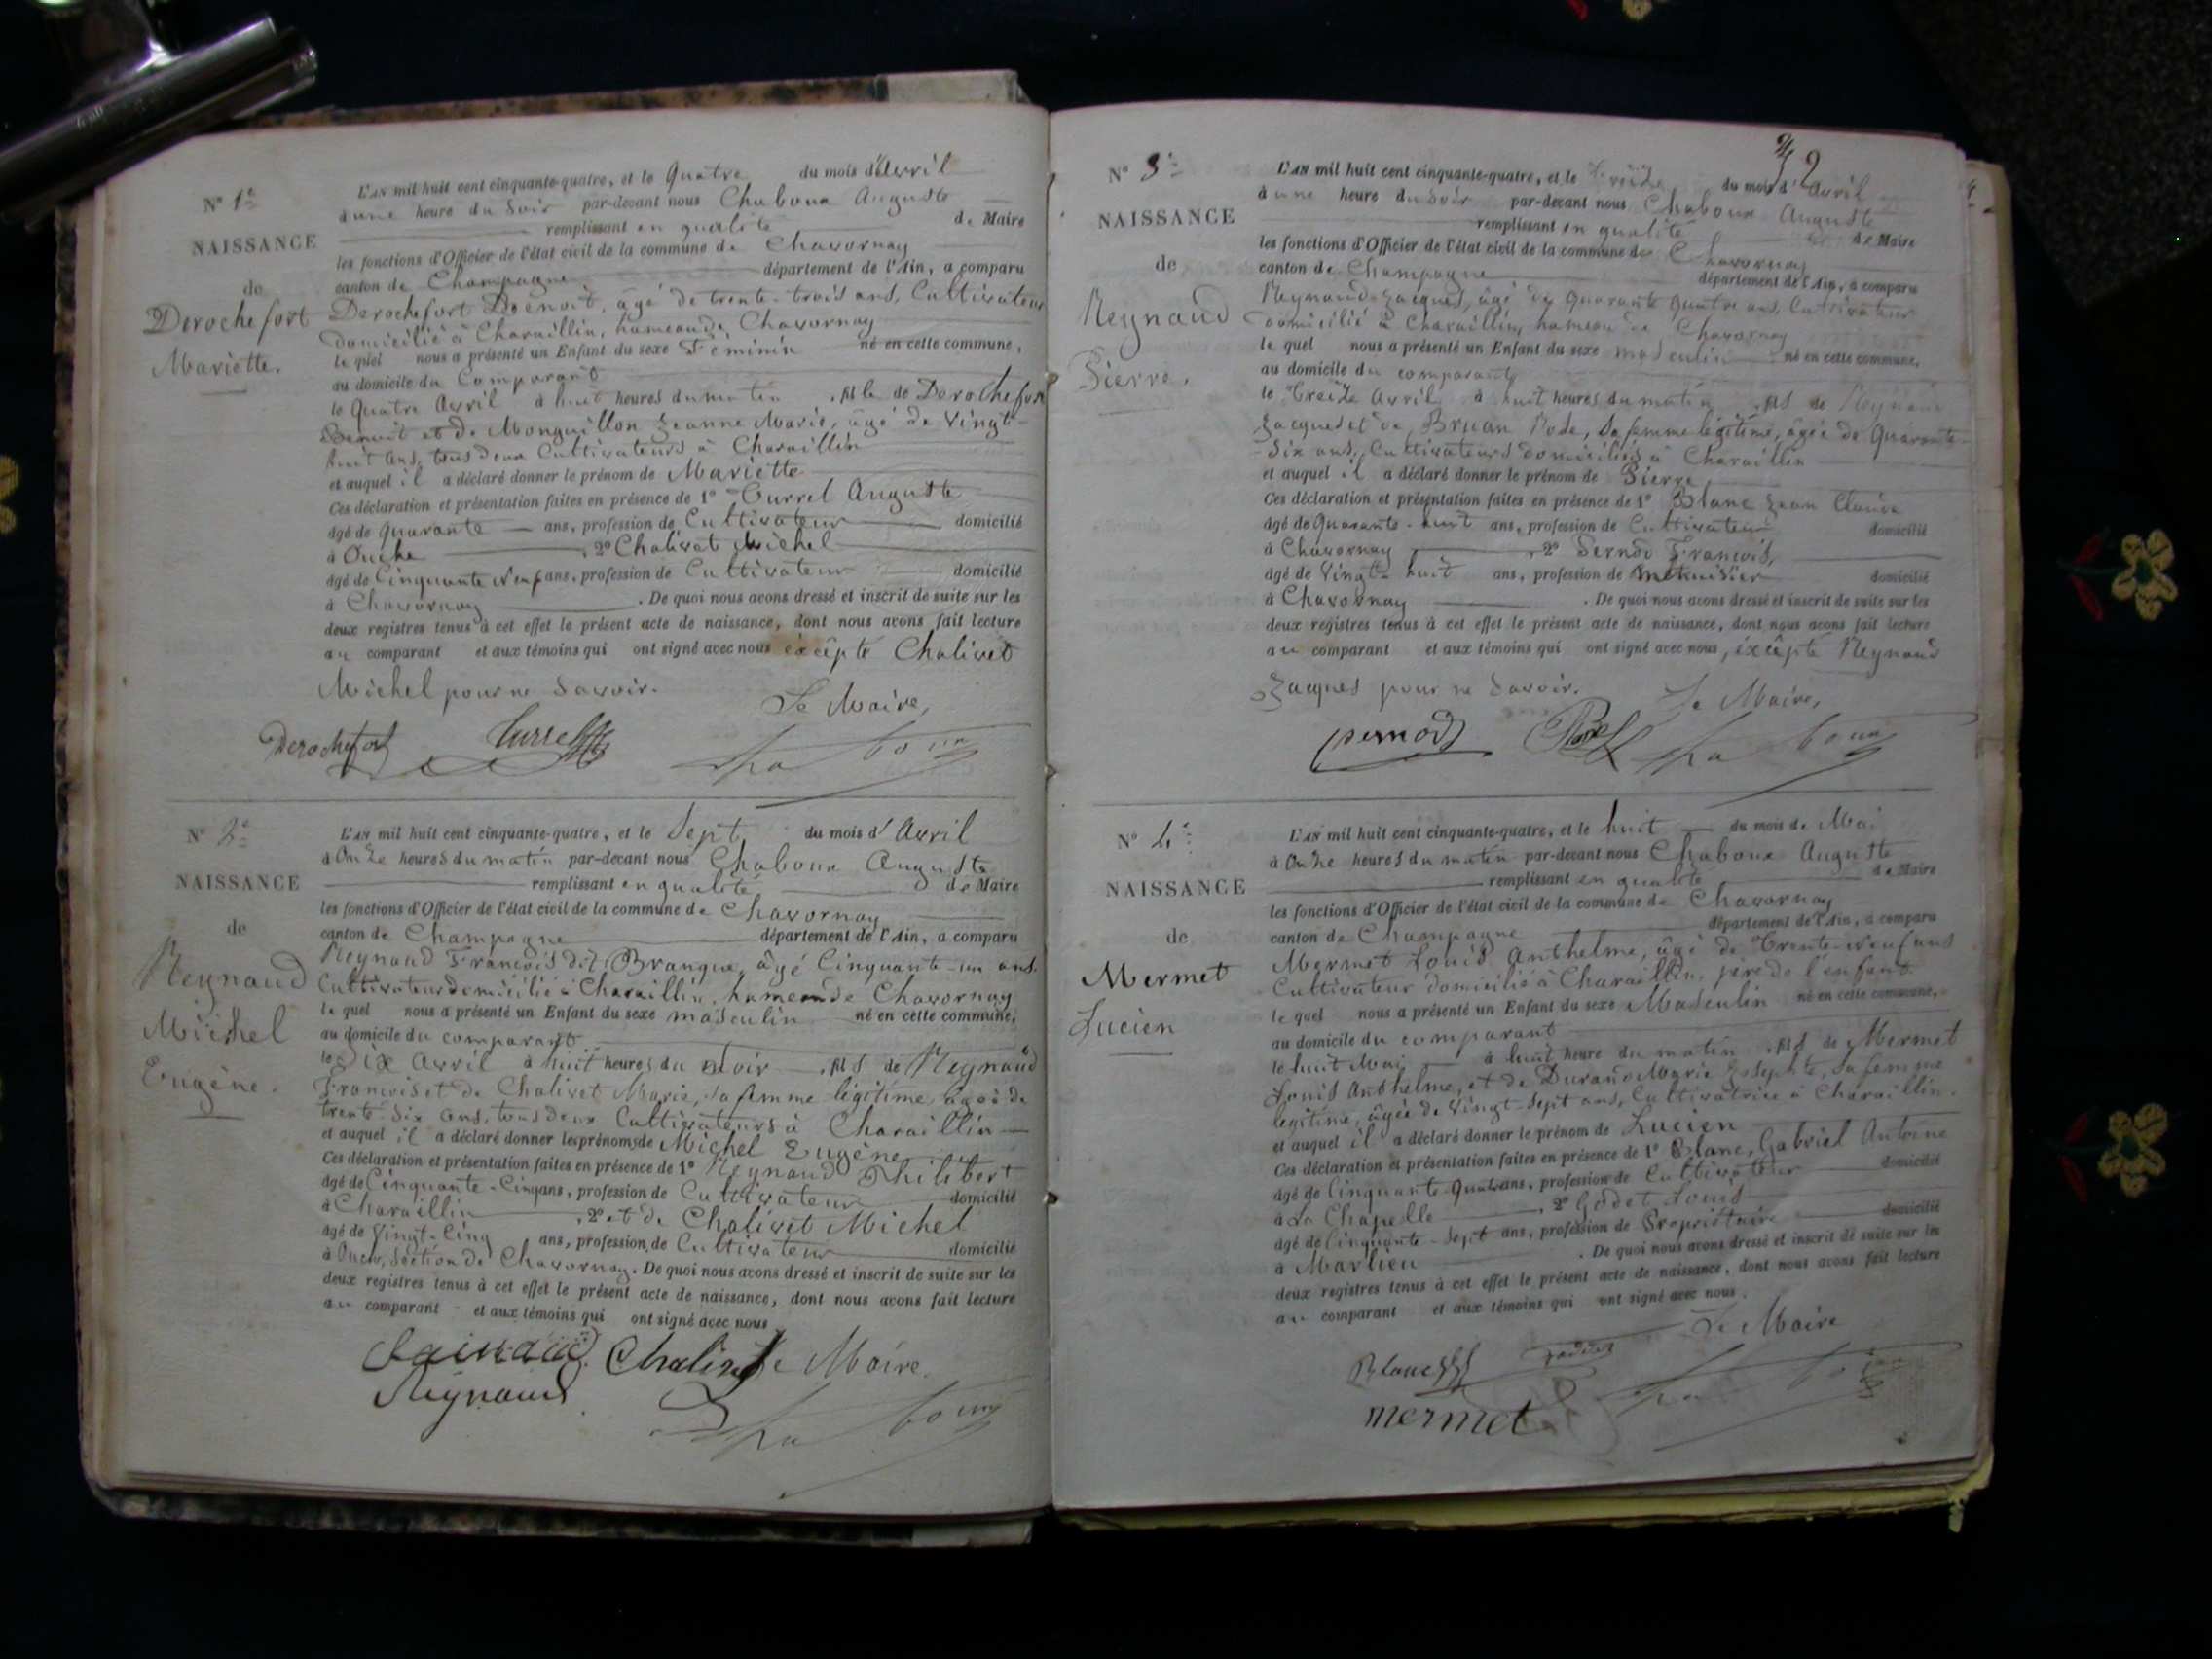 N° 1er
NAISSANCE
de
Derochefort
Mariette.
L'AN mil huit cent cinquante-quatre, et le Quatre du mois d'Avril
à une heure du Soir par-devant nous Chaboux Auguste
remplissant en qualité de Maire
les fonctions d'Officier de l'état civil de la commune de Chavornay
canton de Champagne département de l'Ain, a comparu
Derochefort Benoit, âgé de trente-trois ans, Cultivateur
domicilié à Charaillin, hameau de Chavornay
le quel nous a présenté un Enfant du sexe Féminin né en cette commune,
au domicile du Comparant
le Quatre Avril à huit heures du matin , fille de Derochefort
Benoit et de Monguillon Jeanne Marie, âgé de Vingt-
huit ans, tous deux Cultivateurs à Charaillin
et auquel il a déclaré donner le prénom de Mariette
Ces déclaration et présentation faites en présence de 1° Turrel Auguste
âgé de quarante ans, profession de Cultivateur domicilié
à Ouche , 2° Chalivet Michel
âgé de Cinquante Neuf ans, profession de Cultivateur domicilié
à Chavornay . De quoi nous avons dressé et inscrit de suite sur les
deux registres tenus à cet effet le présent acte de naissance, dont nous avons fait lecture
au comparant et aux témoins qui ont signé avec nous excepté Chalivet
Michel pour ne Savoir.
Le Maire,
Derochefort Turrel Chaboux
N° 2e
NAISSANCE
de
Reynaud
Michel
Eugène.
L'AN mil huit cent cinquante-quatre, et le Sept du mois d'Avril
à Onze heures du matin par-devant nous Chaboux Auguste
remplissant en qualité de Maire
les fonctions d'Officier de l'état civil de la commune de Chavornay
canton de Champagne département de l'Ain, a comparu
Reynaud François dit Branque, âgé Cinquante-un ans.
Cultivateur domicilié à Charaillin, hameau de Chavornay
le quel nous a présenté un Enfant du sexe masculin né en cette commune,
au domicile du comparant
le Six Avril à huit heures du Soir , fils de Reynaud
François et de Chalivet Marie, sa femme légitime âgée de
trente-Six ans, tous deux Cultivateurs à Charaillin
et auquel il a déclaré donner les prénoms de Michel Eugène
Ces déclaration et présentation faites en présence de 1° Reynaud Philibert
âgé de Cinquante-Cinq ans, profession de Cultivateur domicilié
à Charaillin , 2° et de Chalivet Michel
âgé de Vingt-Cinq ans, profession de Cultivateur domicilié
à Section de Chavornay. De quoi nous avons dressé et inscrit de suite sur les
deux registres tenus à cet effet le présent acte de naissance, dont nous avons fait lecture
au comparant et aux témoins qui ont signé avec nous
Chalivet Le Maire.
Reynaud Chaboux
N° 3e
NAISSANCE
de
Reynaud
Pierre.
L'AN mil huit cent cinquante-quatre, et le Treize du mois d'Avril
à une heure du Soir par-devant nous Chaboux Auguste
remplissant en qualité de Maire
les fonctions d'Officier de l'état civil de la commune de Chavornay
canton de Champagne département de l'Ain, a comparu
Reynaud Jacques, âgé de Quarante Quatre ans, Cultivateur
domicilié à Charaillin, hameau de Chavornay
le quel nous a présenté un Enfant du sexe masculin né en cette commune,
au domicile du comparant
le Treize Avril à huit heures du matin , fils de Reynaud
Jacques et de Bruan Rose, Sa femme légitime, âgée de Quarante-
Six ans, Cultivateurs domiciliés à Charaillin
et auquel il a déclaré donner le prénom de Pierre
Ces déclaration et présentation faites en présence de 1° Blanc Jean Claude
âgé de Quarante-huit ans, profession de Cultivateur domicilié
à Chavornay , 2° Pernod François,
âgé de Vingt-huit ans, profession de menuisier domicilié
à Chavornay . De quoi nous avons dressé et inscrit de suite sur les
deux registres tenus à cet effet le présent acte de naissance, dont nous avons fait lecture
au comparant et aux témoins qui ont signé avec nous, excepté Reynaud
Jacques pour ne Savoir.
Le Maire,
pernod Chaboux
N° 4e
NAISSANCE
de
Mermet
Lucien
L'AN mil huit cent cinquante-quatre, et le huit du mois de Mai
à Onze heures du matin par-devant nous Chaboux Auguste
remplissant en qualité de Maire
les fonctions d'Officier de l'état civil de la commune de Chavornay
canton de Champagne département de l'Ain, a comparu
Mermet Louis Anthelme, âgé de Trente-Neuf ans
Cultivateur domicilié à Charaillin, père de l'enfant
le quel nous a présenté un Enfant du sexe Masculin né en cette commune,
au domicile du comparant
le huit Mai à huit heure du matin , fils de Mermet
Louis Anthelme, et de Durand Marie Josephte, Sa femme
légitime, âgée de Vingt-Sept ans, Cultivatrice à Charaillin.
et auquel il a déclaré donner le prénom de Lucien
Ces déclaration et présentation faites en présence de 1° Blanc, Gabriel Antoine
âgé de Cinquante-Quatre ans, profession de Cultivateur domicilié
à La Chapelle , 2° Godet Louis
âgé de Cinquante-Sept ans, profession de Propriétaire domicilié
à Marlieu . De quoi nous avons dressé et inscrit de suite sur les
deux registres tenus à cet effet le présent acte de naissance, dont nous avons fait lecture
au comparant et aux témoins qui ont signé avec nous.
Le Maire
Blanc Chaboux
mermet